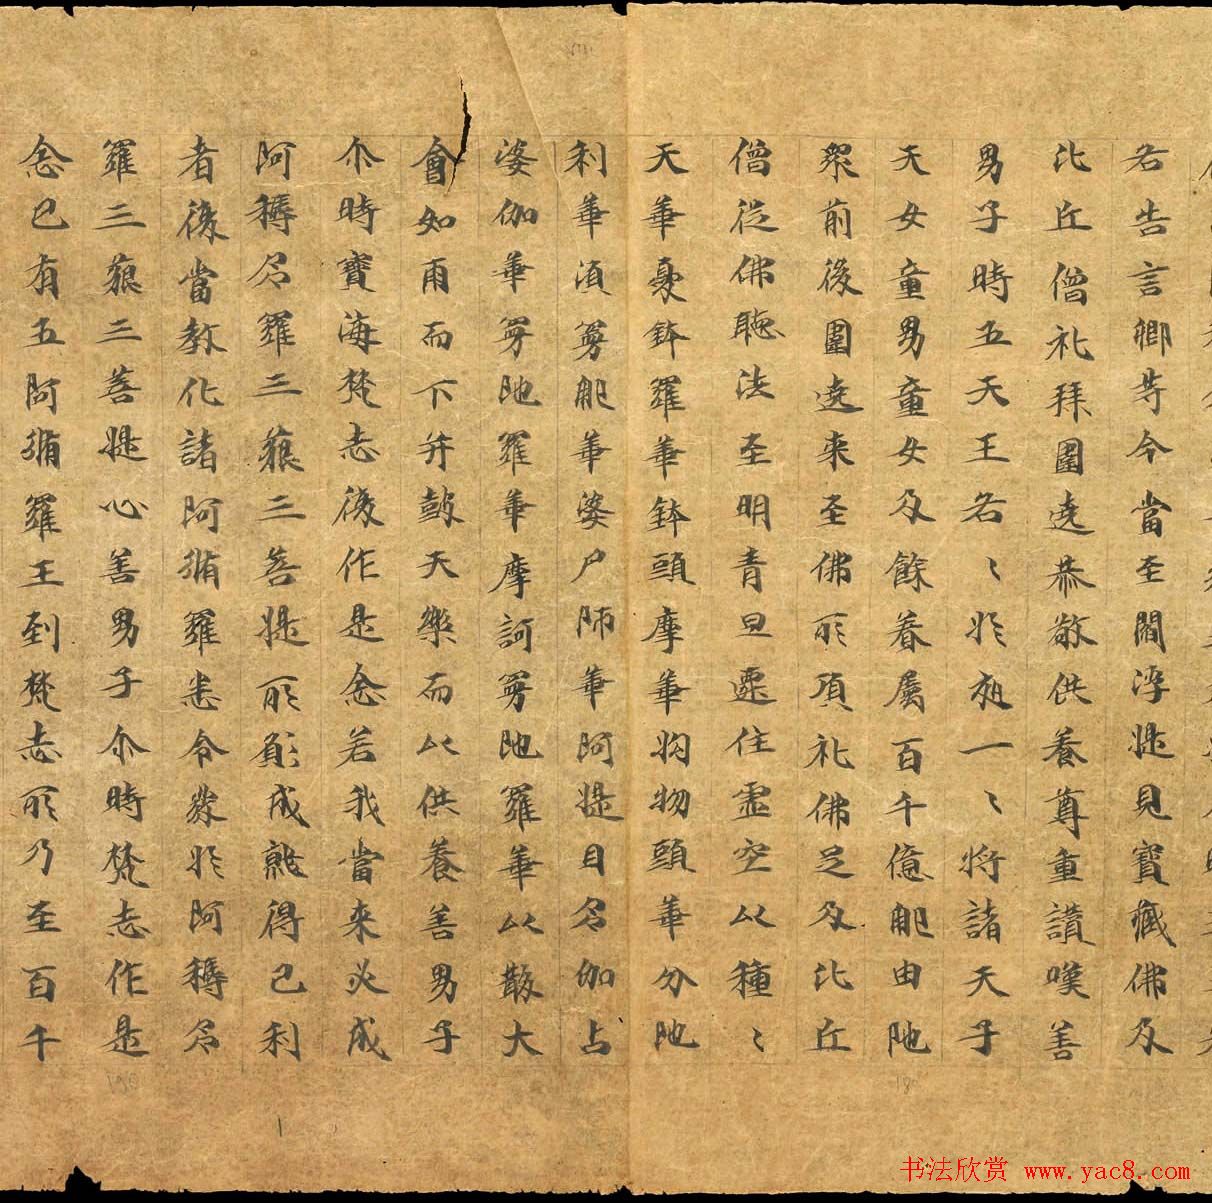 各告言卿等今當至閻浮提見寶藏佛及
比丘僧礼拜圍遶恭敬供養尊重讃嘆善
男子時五天王各〻於夜一〻將諸天子
天女童男童女及餘眷屬百千億那由陁
衆前後圍遶来至佛所頂礼佛足及比丘
僧從佛聽法至明青旦還住虛空以種〻
天華憂鉢羅華鉢頭摩華拘物頭華分陁
利華湏曼那華婆尸師華阿提目多伽占
婆伽華曼陁羅華摩訶曼陁羅華以散大
會如雨而下并鼓天樂而以供養善男子
尒時寶海梵志復作是念若我當来必成
阿耨多羅三藐三菩提所願成就得已利
者復當教化諸阿脩羅悉令發於阿耨多
羅三藐三菩提心善男子尒時梵志作是
念已有五阿脩羅王到梵志所乃至百千
书法欣赏 www.yac8.com